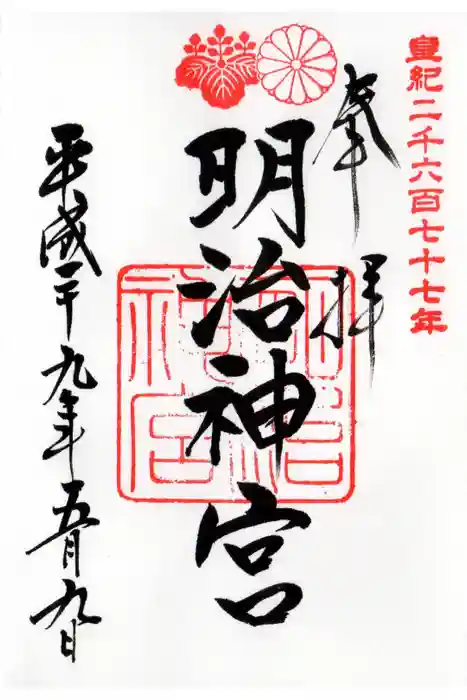 皇紀二千六百七十七年
奉拝
明治神宮
明治
神宮
平成二十九年五月九日